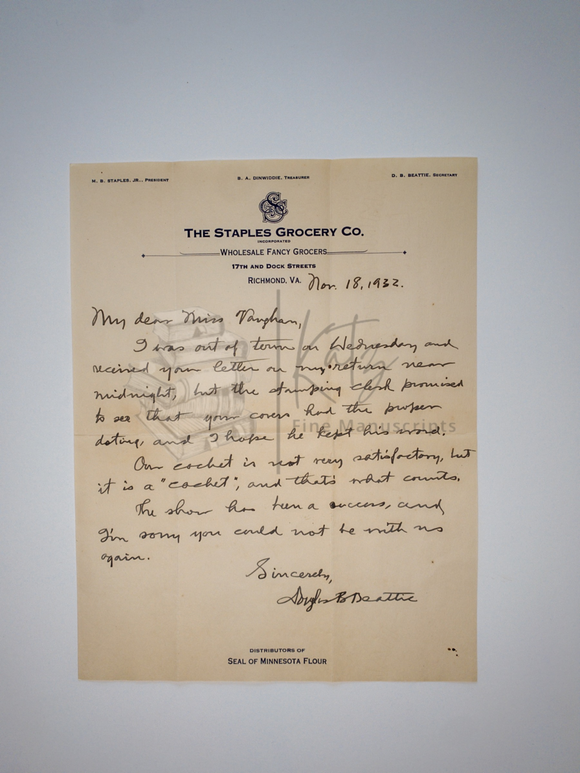 M. S. STAPLES, JR., PRESIDENT
S. A. DINWIDDIE, TREASURER
D. B. BEATTIE, SECRETARY
THE STAPLES GROCERY CO.
INCORPORATED
WHOLESALE FANCY GROCERS
17TH AND DOCK STREETS
RICHMOND, VA. Nov. 18, 1932.
My dear Miss Vaughan,
I was out of town on Wednesday and
received your letter on my return near
midnight, but the stamping clerk promised
to see that your covers had the proper
dating, and I hope he kept his word.
Our cachet is not very satisfactory, but
it is a "cachet", and that's what counts.
The show has been a success, and
I'm sorry you could not be with us
again.
Sincerely,
Douglas B Beattie
DISTRIBUTORS OF
SEAL OF MINNESOTA FLOUR
Katz
Fine Manuscripts